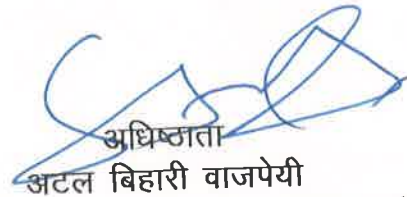 अधिष्ठाता
अटल बिहारी वाजपेयी